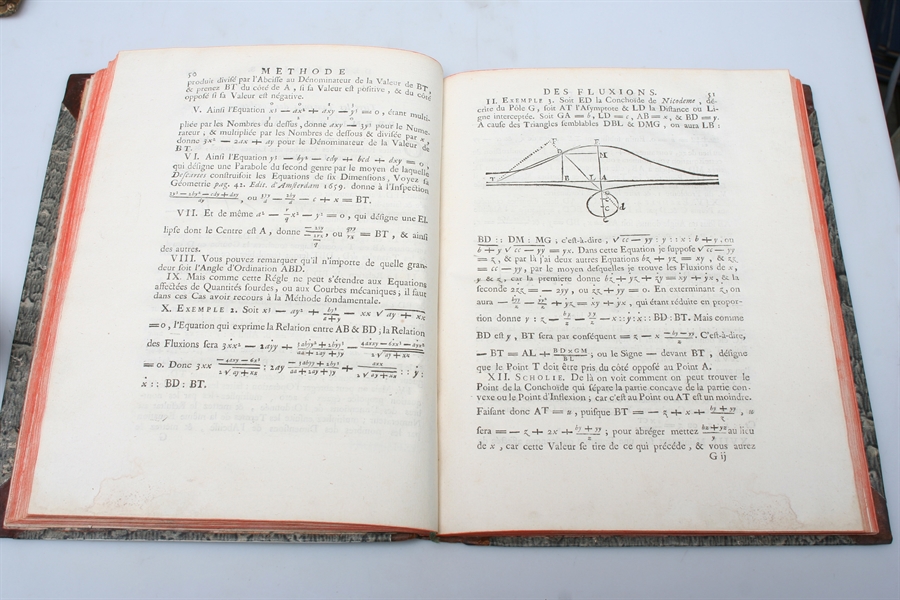 50 METHODE
produit divisé par l'Abcisse au Dénominateur de la Valeur de BT,
& prenez BT du côté de A, si sa Valeur est positive, & du côté
opposé si sa Valeur est négative.
V. Ainsi l'Equation x³ — ax² + axy — y³ = 0, étant multi-
pliée par les Nombres du dessus, donne axy — 3y³ pour le Nume-
rateur, & multipliée par les Nombres de dessous & divisée par x,
donne 3x² — 2ax + ay pour le Dénominateur de la Valeur de
BT.
VI. Ainsi l'Equation y³ — by² — cdy + bcd + dxy = 0,
qui désigne une Parabole du second genre par le moyen de laquelle
Descartes construisoit les Equations de six Dimensions, Voyez sa
Géometrie pag. 42. Edit. d'Amsterdam 1659. donne à l'Inspection
3y³ — 2by² — cdy + dxy / dy, ou 3yy / d — 2by / d — c + x = BT.
VII. Et de même a² — r/q x² — y² = 0, qui désigne une El-
lipse dont le Centre est A, donne — 2yy / — 2rx / q, ou qyy / rx = BT, & ainsi
des autres.
VIII. Vous pouvez remarquer qu'il n'importe de quelle gran-
deur soit l'Angle d'Ordination ABD.
IX. Mais comme cette Régle ne peut s'étendre aux Equations
affectées de Quantités sourdes, ou aux Courbes mécaniques; il faut
dans ces Cas avoir recours à la Méthode fondamentale.
X. EXEMPLE 2. Soit x³ — ay² + by³ / a + y — xx √ ay + xx
= 0, l'Equation qui exprime la Relation entre AB & BD; la Relation
des Fluxions sera 3ẋx² — 2aẏy + 3abẏy² + 2bẏy³ / aa + 2ay + yy — 4aẋxy — 6ẋx³ — aẏx² / 2 √ ay + xx
= 0. Donc 3xx — 4axy — 6x³ / 2 √ ay + xx : 2ay — 3aby² + 2by³ / aa + 2ay + yy + axx / 2 √ ay + xx :: ẏ :
ẋ :: BD : BT.
DES FLUXIONS. 51
II. EXEMPLE 3. Soit ED la Conchoïde de Nicodeme, dé-
crite du Pôle G, soit AT l'Asymptote & LD la Distance ou Li-
gne interceptée. Soit GA = b, LD = c, AB = x, & BD = y.
A cause des Triangles semblables DBL & DMG, on aura LB :
D E
M
T B L A
G
C
d
BD :: DM : MG; c'est-à-dire, √ cc — yy : y :: x : b + y, ou
b + y √ cc — yy = yx. Dans cette Equation je suppose √ cc — yy
= z, & par là j'ai deux autres Equations bz + yz = xy, & zz
= cc — yy, par le moyen desquelles je trouve les Fluxions de x,
y & z, car la premiere donne bż + yż + ẏz = ẋy + ẏx, & la
seconde 2żz = — 2ẏy, ou żz + ẏy = 0. En exterminant ż, on
aura — bẏy / z — ẏy² / z + ẏz = ẋy + ẏx, qui étant réduite en propor-
tion donne y : z — by / z — yy / z — x :: ẏ : ẋ :: BD : BT. Mais comme
BD est y, BT sera par conséquent = z — x — by — yy / z. C'est-à-dire,
— BT = AL + BD × GM / BL; ou le Signe — devant BT, désigne
que le Point T doit être pris du côté opposé au Point A.
XII. SCHOLIE. De là on voit comment on peut trouver le
Point de la Conchoïde qui sépare la partie concave de la partie con-
vexe ou le Point d'Inflexion; car c'est au Point ou AT est un moindre.
Faisant donc AT = u, puisque BT = — z + x + by + yy / z, u
sera = — z + 2x + by + yy / z; pour abréger mettez bz + yz / y au lieu
de x, car cette Valeur se tire de ce qui précéde, & vous aurez
G ij